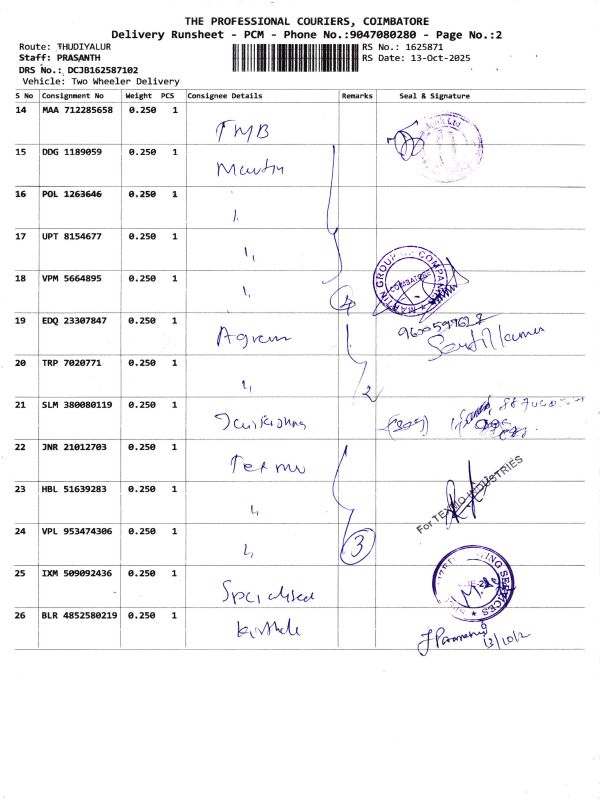 THE PROFESSIONAL COURIERS, COIMBATORE
Delivery Runsheet - PCM - Phone No.:9047080280 - Page No.:2
Route: THUDIYALUR RS No.: 1625871
Staff: PRASANTH RS Date: 13-Oct-2025
DRS No.: DCJB162587102
Vehicle: Two Wheeler Delivery
S No Consignment No Weight PCS Consignee Details Remarks Seal & Signature
14 MAA 712285658 0.250 1 TMB
15 DDG 1189059 0.250 1 Martin
16 POL 1263646 0.250 1 "
17 UPT 8154677 0.250 1 "
18 VPM 5664895 0.250 1 " 4 MARTIN GROUP OF COMPANIES COIMBATORE
19 EDQ 23307847 0.250 1
20 TRP 7020771 0.250 1 " 2
21 SLM 380080119 0.250 1
22 JNR 21012703 0.250 1 Texmo
23 HBL 51639283 0.250 1 " For TEXMO INDUSTRIES
24 VPL 953474306 0.250 1 " 3
25 IXM 509092436 0.250 1 Specialised
26 BLR 4852580219 0.250 1